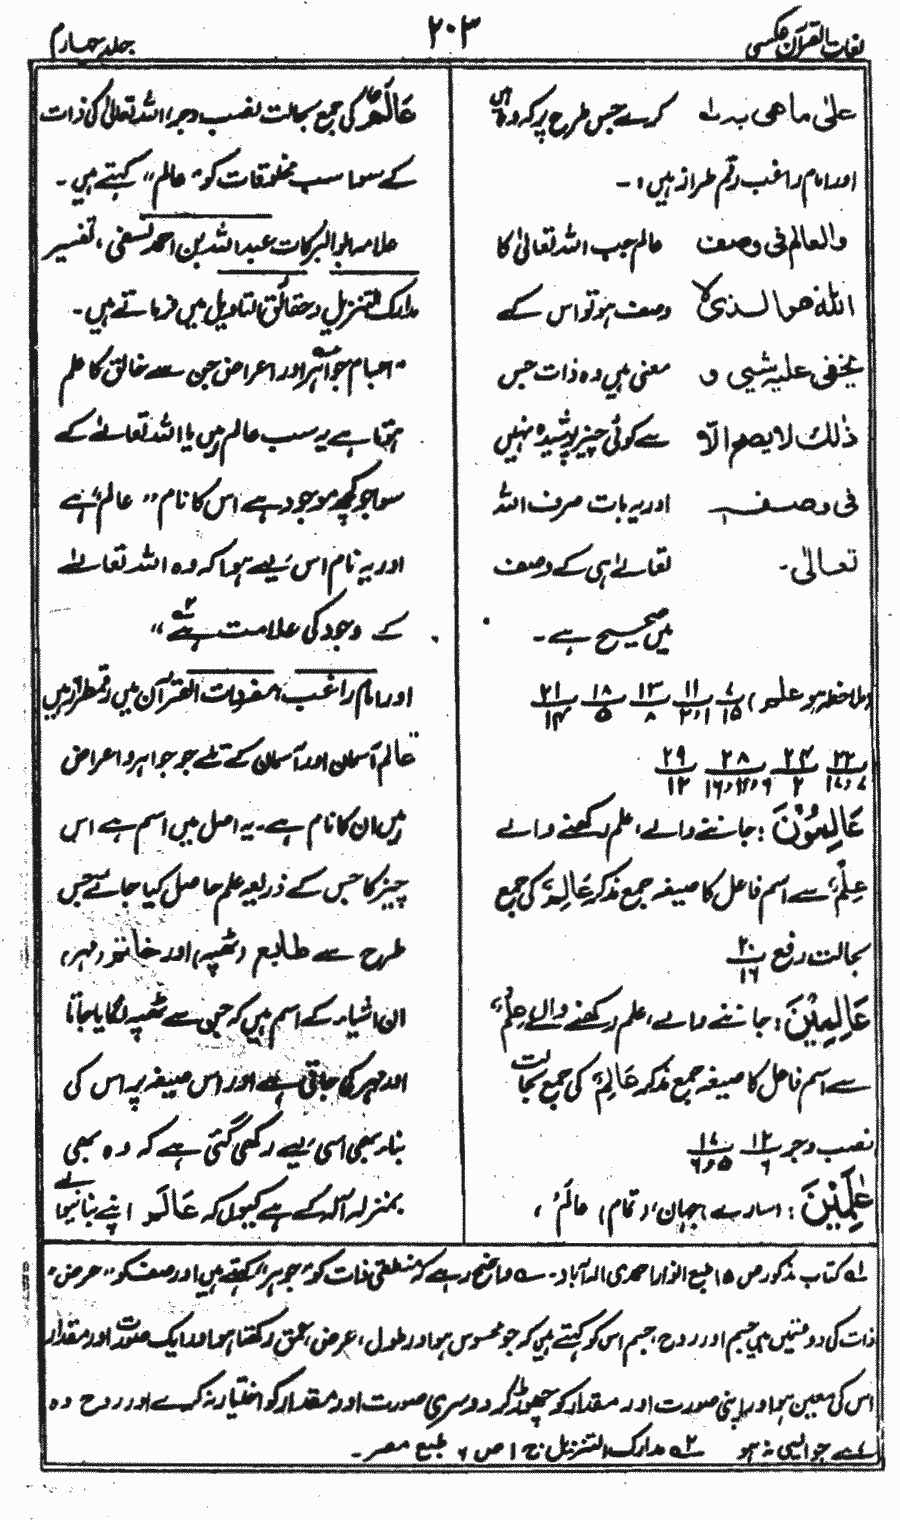 لغات القرآن عکسی
۲۰۳
جلد چہارم
علٰی ما ھی بہ ـ کرے جس طرح پر کہ وہ ہیں
اور امام راغب رقم طراز ہیں ؛ ۔
والعالم فی وصف عالم جب اللہ تعالیٰ کا
اللہ ھو الذی لا وصف ہو تو اس کے
یخفی علیہ شیی و معنی ہیں وہ ذات جس
ذٰلک لا یصح الّا سے کوئی چیز پوشیدہ نہیں
فی وصفہ اور یہ بات صرف اللہ
تعالیٰ۔ تعالےٰ ہی کے وصف
میں صحیح ہے ۔
(ملاحظہ ہو علیم) ۷/۱۵ ۱۱/۱و۲ ۱۳/۸ ۱۸/۵ ۲۱/۱۴
۲۲/۷و۱۷ ۲۴/۲ ۲۸/۶و۱۴و۱۶ ۲۹/۱۲
عَالِمُوْنَ : جاننے والے، علم رکھنے والے
عِلْمٌ سے اسم فاعل کا صیغہ جمع مذکر عَالِمٌ کی جمع
بحالت رفع ۲۰/۱۶
عَالِمِیْنَ : جاننے والے، علم رکھنے والے عِلْمٌ
سے اسم فاعل کا صیغہ جمع مذکر عَالِمٌ کی جمع بحالت
نصب وجر ۱۲/۶ ۱۷/۵و۶
عٰلَمِیْنَ : ، سارے جہان، تمام عالَم ،
عَالَمٌ کی جمع بحالت نصب وجر، اللہ تعالیٰ کی ذات
کے سوا سب مخلوقات کو "عالم" کہتے ہیں ۔
علامہ ابو البرکات عبد اللہ بن احمد نسفی، تفسیر
مدارک التنزیل وحقائق التاویل میں فرماتے ہیں ۔
" اجسام جواہر اور اعراض جن سے خالق کا علم
ہوتا ہے یہ سب عالم ہیں یا اللہ تعالےٰ کے
سوا جو کچھ موجود ہے اس کا نام " عالم " ہے
اور یہ نام اس لیے ہوا کہ وہ اللہ تعالےٰ
کے وجود کی علامت ہے ۲ "
اور امام راغب، مفردات القرآن میں رقمطراز ہیں
" عالم آسمان اور آسمان کے تلے جو جواہر و اعراض
ہیں ان کا نام ہے۔ یہ اصل میں اسم ہے اس
چیز کا جس کے ذریعہ علم حاصل کیا جائے جس
طرح سے طابع (ٹھپہ) اور خاتم (مہر)
ان اشیاء کے اسم ہیں کہ جن سے ٹھپہ لگایا جاتا
اور مہر کی جاتی ہے اور اس صیغہ پر اس کی
بناء بھی اسی لیے رکھی گئی ہے کہ وہ بھی
بمنزلہ آلہ کے ہے کیوں کہ عَالَم اپنے بنانیوالے
لہ کتاب مذکور ص ۱۵ طبع انوار احمدی الہ آباد۔ سہ واضح رہے کہ منطقی ذات کو "جوہر" کہتے ہیں اور صفت کو "عرض"
ذات کی دو قسمیں ہیں جسم اور روح، جسم اس کو کہتے ہیں کہ جو محسوس ہو اور طول، عرض، عمق رکھتا ہو اور ایک صورت اور مقدار
اس کی معین ہو اور اپنی صورت اور مقدار کو چھوڑ کر دوسری صورت اور مقدار کو اختیار نہ کرے اور روح وہ
ہے جو ایسی نہ ہو ۲ہ مدارک التنزیل ج ۱ ص ۶ طبع مصر ۔